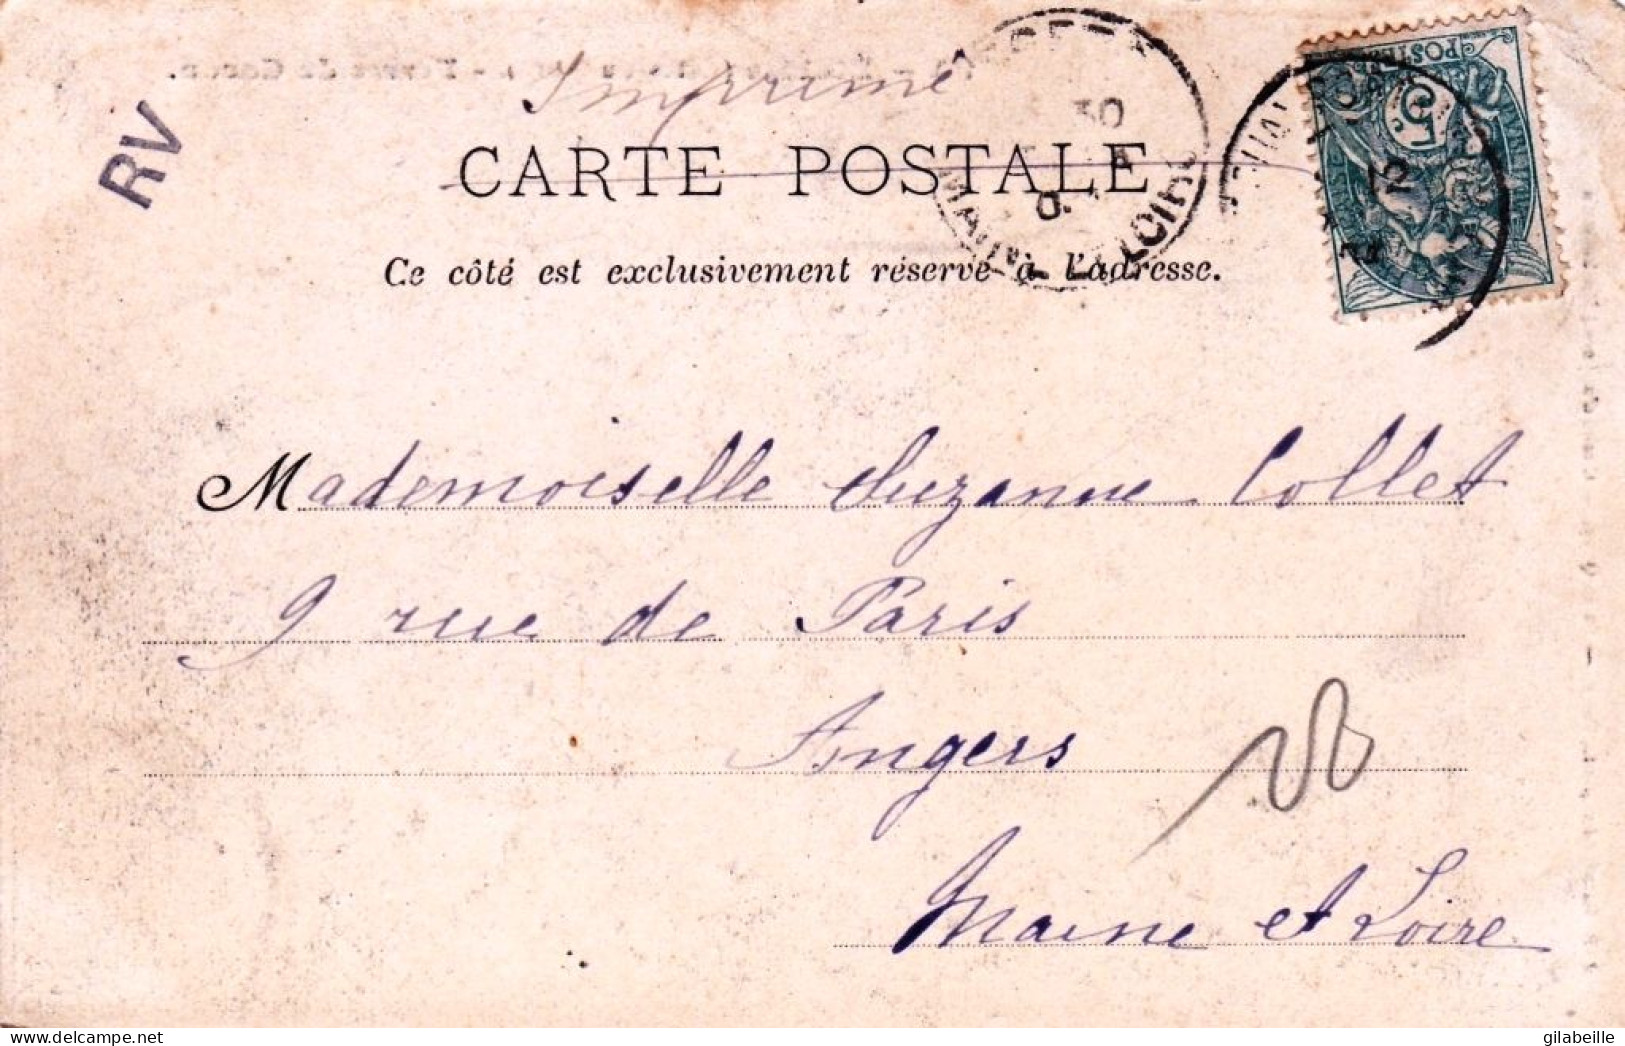 Imprimé
RV
CARTE POSTALE
Ce côté est exclusivement réservé à l'adresse.
POSTES
5
Mademoiselle Suzanne Collet
9 rue de Paris
Angers
Maine et Loire
gilabeille